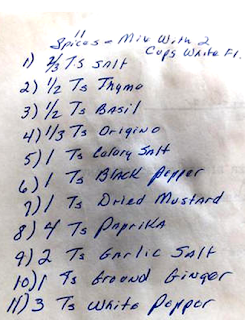 11
Spices - Mix With 2
Cups White Fl.
1) 2/3 T.S SAlt
2) 1/2 Ts Thyme
3) 1/2 Ts BASil
4) 1/3 Ts Origino
5) 1 Ts Calary SAlt
6) 1 Ts BlAck Pepper
7) 1 Ts Dried Mustard
8) 4 Ts PApriKA
9) 2 Ts GArlic SAlt
10) 1 Ts Ground Ginger
11) 3 Ts White Pepper